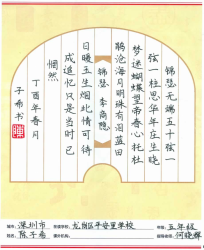 锦瑟无端五十弦一
弦柱思华年庄生晓
梦迷蝴蝶望帝春心托杜
鹃沧海月明珠有泪蓝田
锦瑟 李商隐
日暖玉生烟此情可待
成追忆只是当时已
惘然
丁酉年春月
子希书
深圳市 龙岗区平安里学校 五年级
陈子希 何晓辉